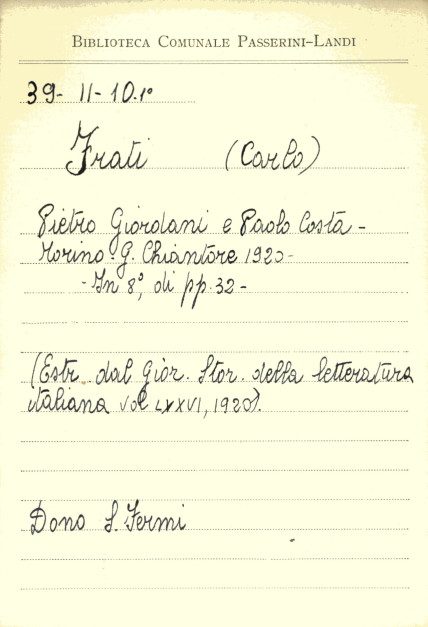 BIBLIOTECA COMUNALE PASSERINI-LANDI
39- II- 10.1º
Frati (Carlo)
Pietro Giordani e Paolo Costa -
Torino. G. Chiantore 1920-
- In 8º, di pp. 32-
(Estr. dal Gior. Stor. della letteratura
italiana vol LXXVI, 1920).
Dono S. Fermi